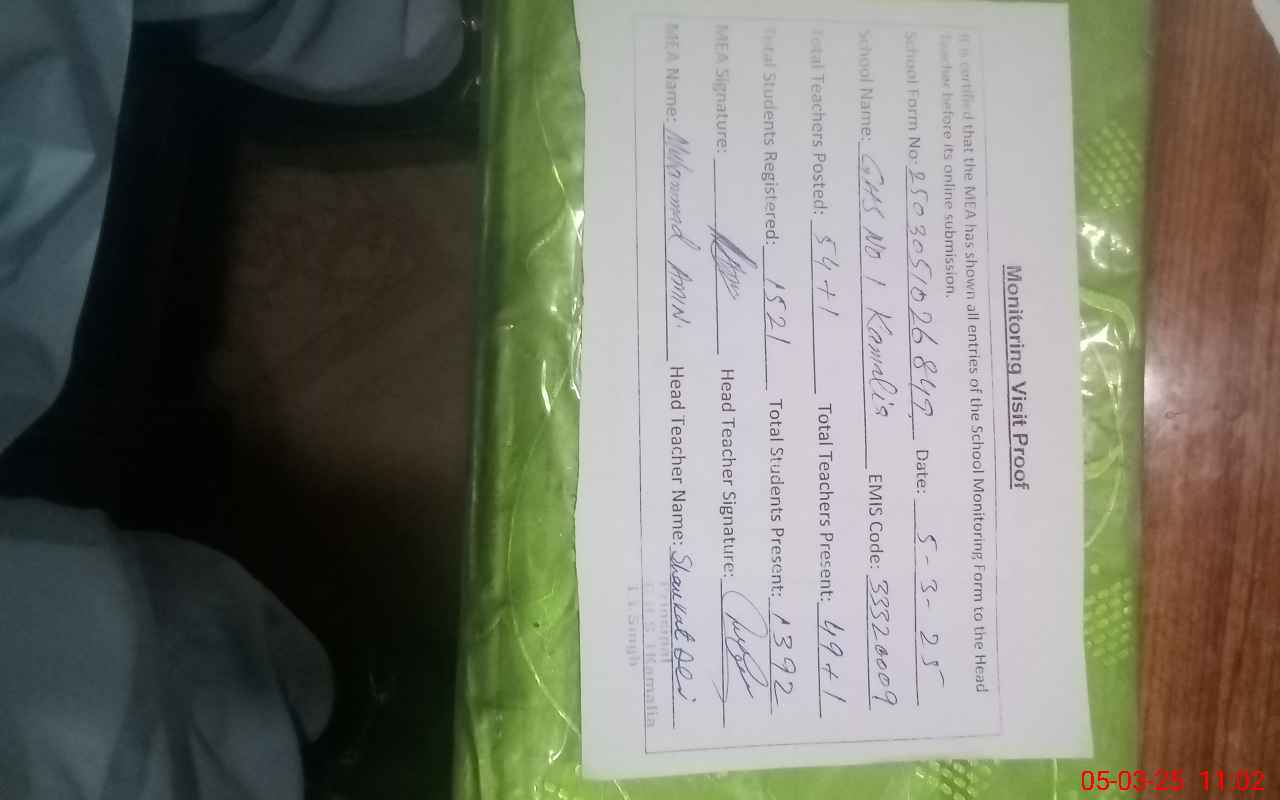 Monitoring Visit Proof
It is certified that the MEA has shown all entries of the School Monitoring Form to the Head
Teacher before its online submission.
School Form No: 250305102684​9 Date: 5-3-25
School Name: GHS No 1 Kamalia EMIS Code: 33320009
Total Teachers Posted: 54+1 Total Teachers Present: 49+1
Total Students Registered: 1521 Total Students Present: 1392
MEA Signature: Head Teacher Signature:
MEA Name: Muhammad AMIN. Head Teacher Name: Shaukat Ali
Principal
G.H.S 1 Kamalia
T.T.Singh
05-03-25 11:02